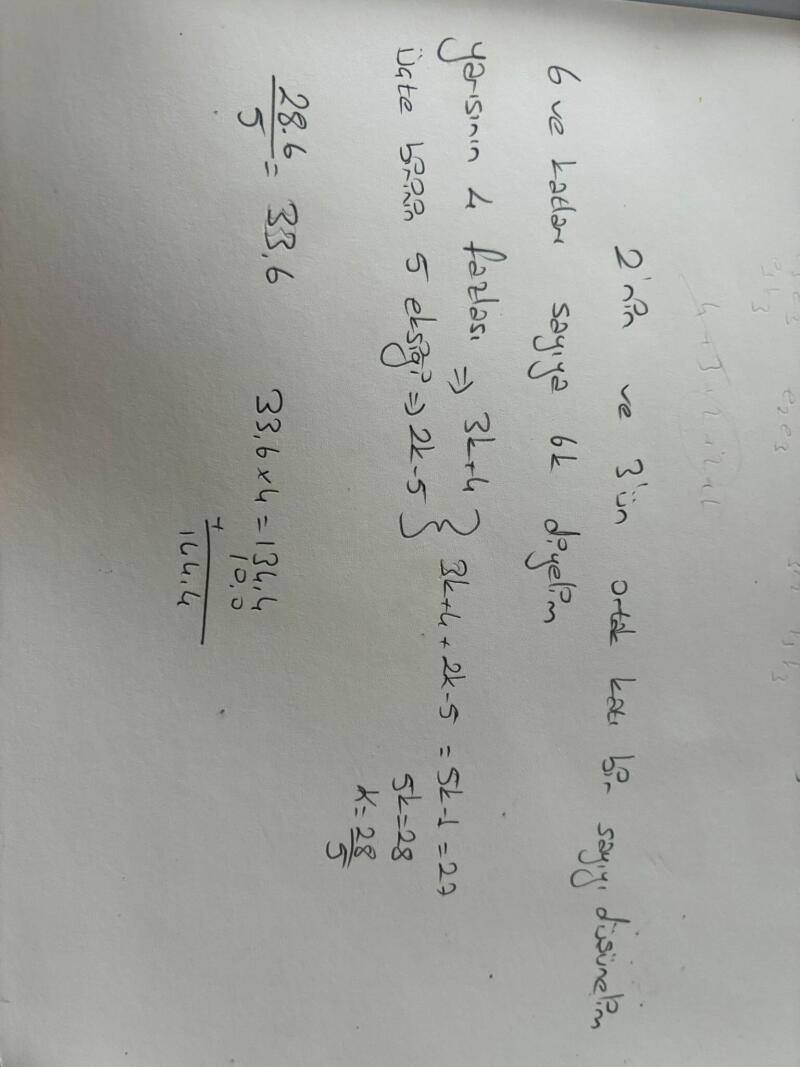 2'nin ve 3'ün ortak katı bir sayıyı düşünelim
6 ve katları sayıya 6k diyelim
Yarısının 4 fazlası => 3k+4
Üçte birinin 5 eksiği => 2k-5 } 3k+4+2k-5 = 5k-1 = 27
5k=28
k=28/5
28.6/5 = 33,6
33,6x4=134,4
10,0
+
144,4